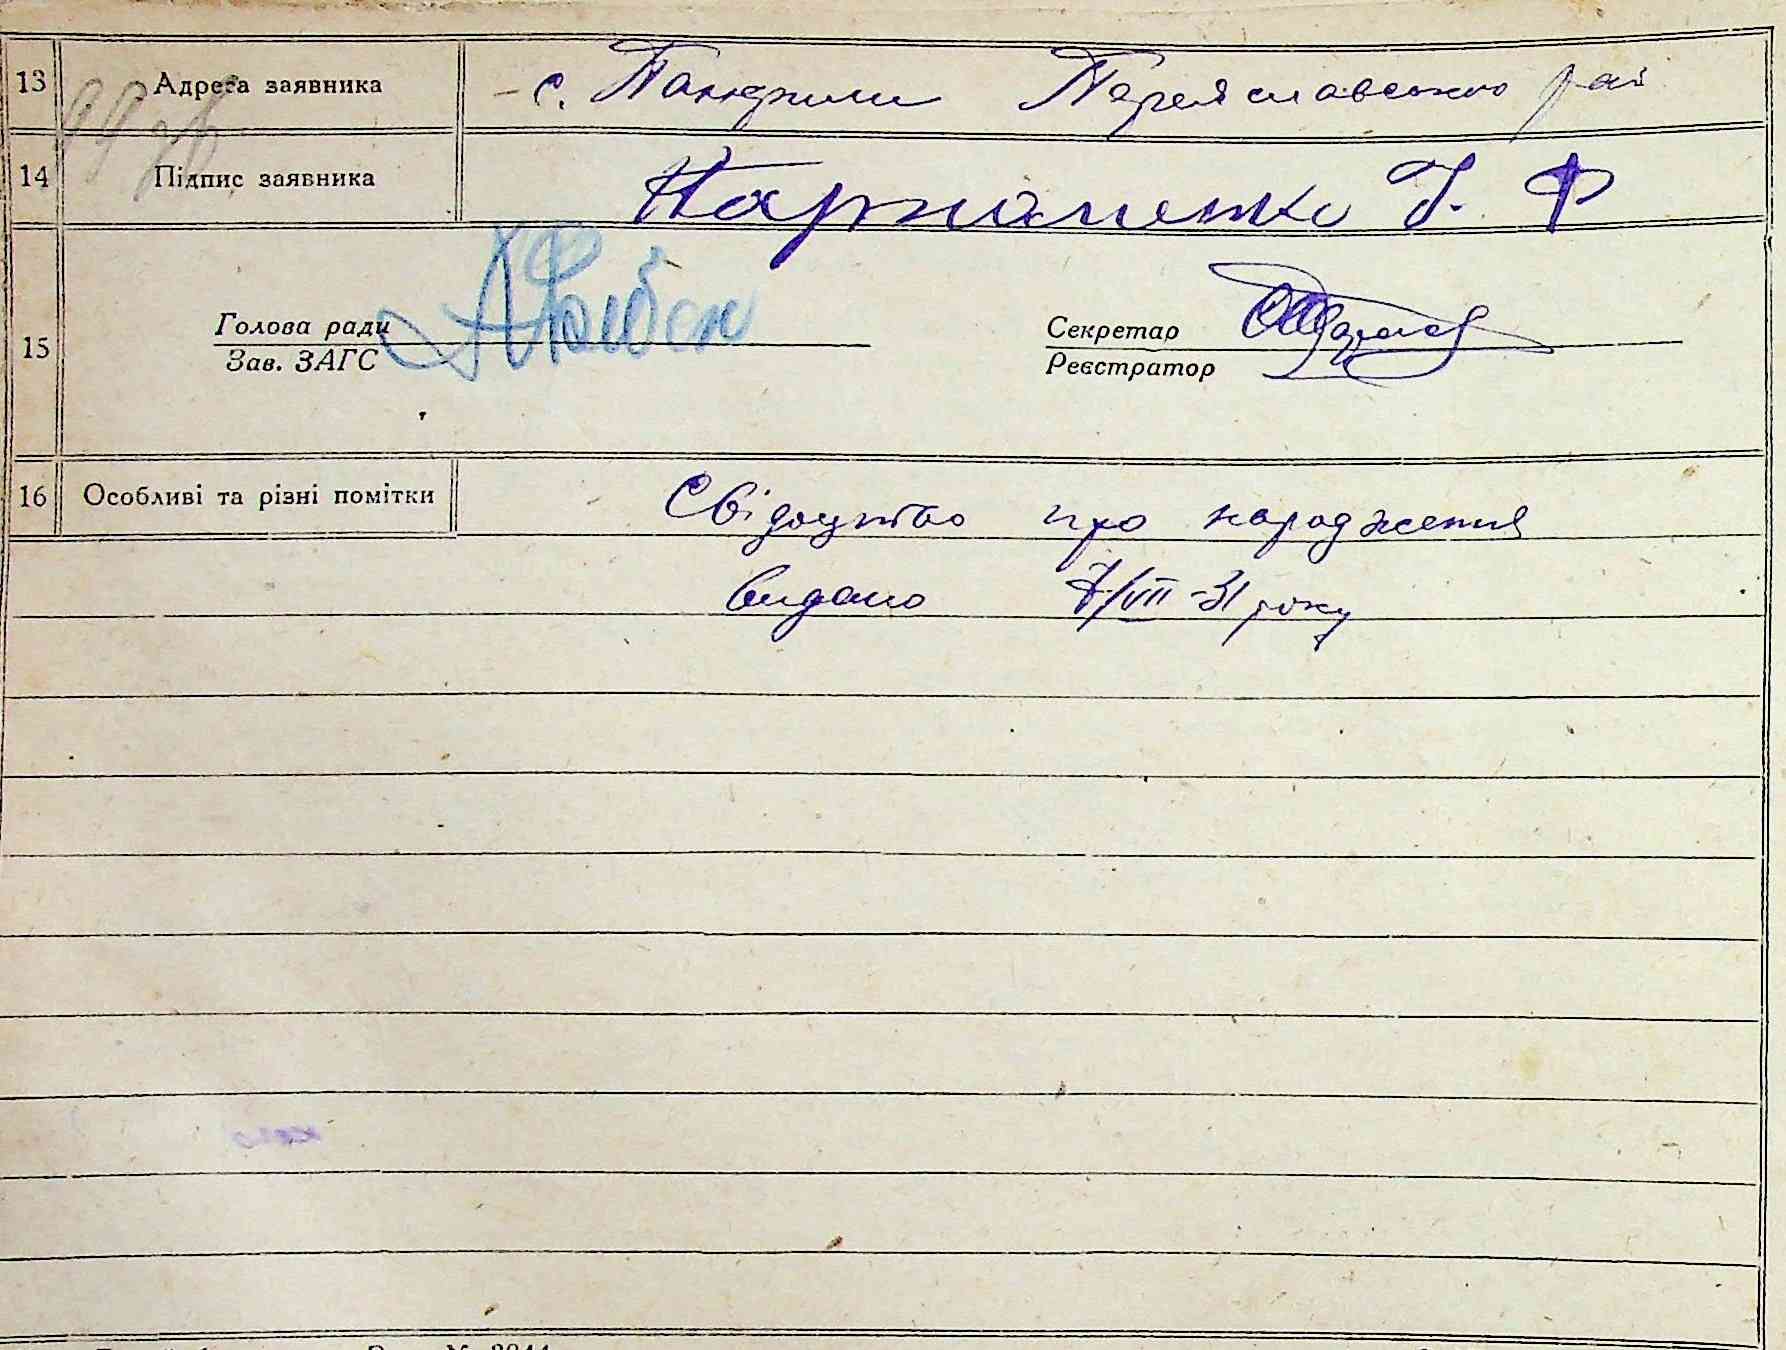 13 Адреса заявника с. Переяславського рай
14 Підпис заявника Пархоменко Ф
15 Голова ради Секретар
Зав. ЗАГС Реєстратор
16 Особливі та різні помітки Свідоцтво про народження
видано 7/VII-31 року